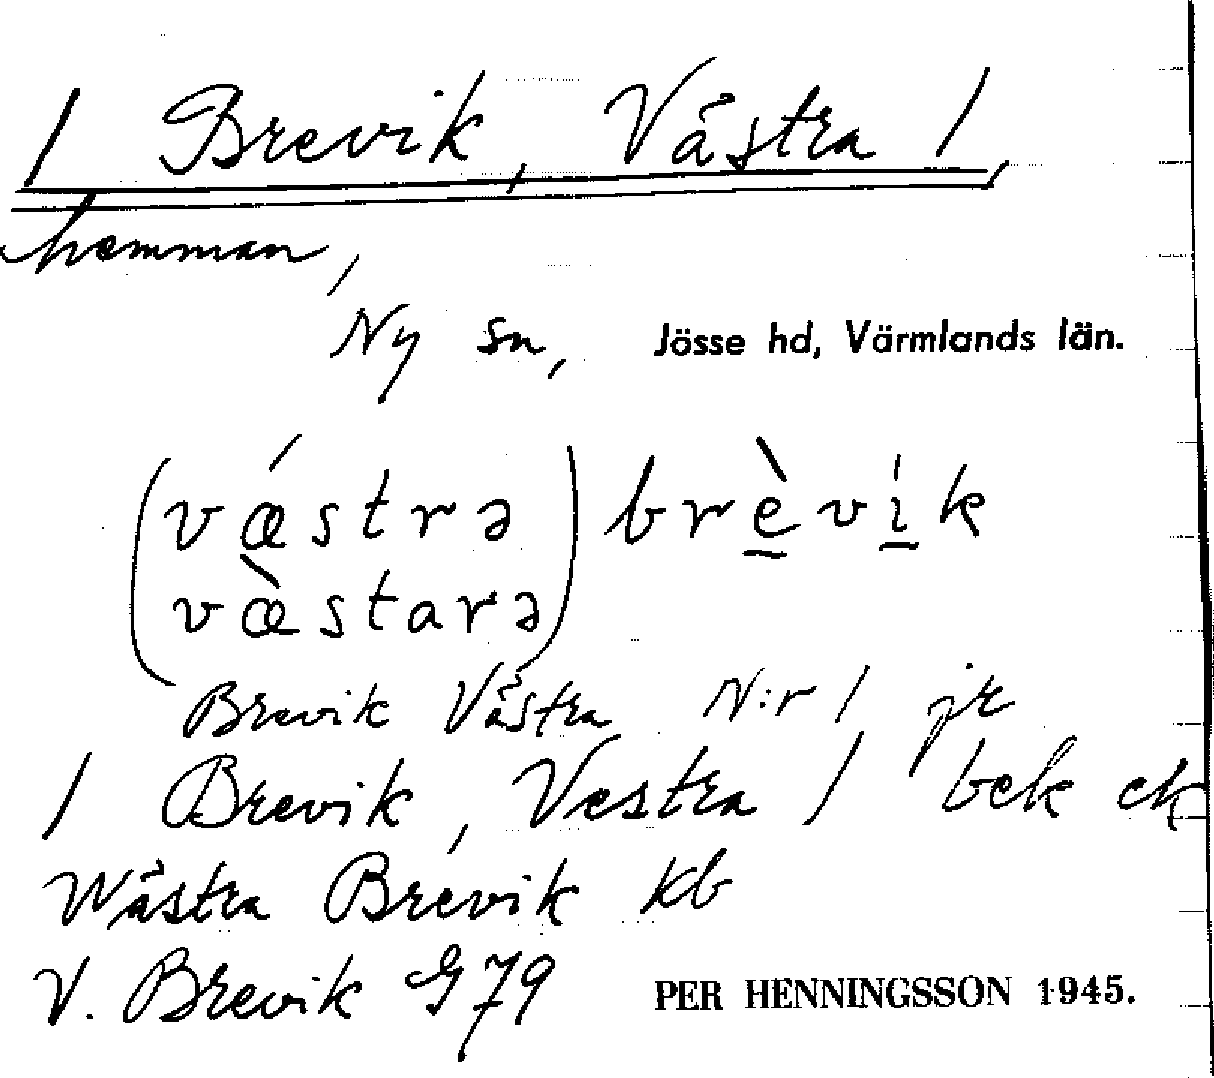 / Brevik, Västra /,
hemman,
Ny sn, Jösse hd, Värmlands län.
(vǽstrə) brèvík
(væ̀starə)
Brevik Västra N:r 1 jr
/ Brevik, Vestra / bek ek
Wästra Brevik kb
V. Brevik G 79
PER HENNINGSSON 1945.